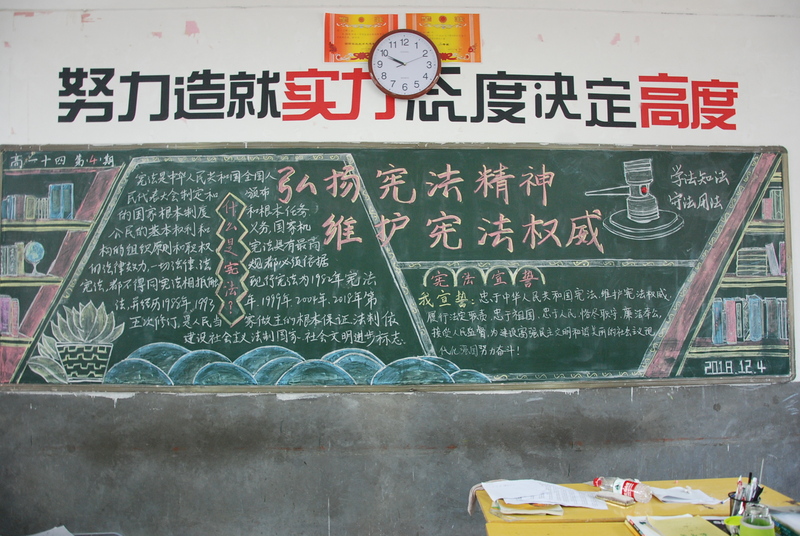 努力造就实力态度决定高度
高一十四 第4期
弘扬宪法精神
维护宪法权威
学法知法
守法用法
什么是宪法?
宪法是中华人民共和国全国人
民代表大会制定和颁布
的国家根本制度和根本任务
公民的基本权利和义务,国家机
构的组织原则和职权
宪法具有最高
的法律效力,一切法律、法规都必须依据
宪法,都不得同宪法相抵触
现行宪法为1982年宪法
法,并经历1988年、1993年、1999年、2004年、2018年第
五次修订,是人民当家做主的根本保证法制依
建设社会主义法制国家、社会文明进步标志.
宪法宣誓
我宣誓:忠于中华人民共和国宪法,维护宪法权威,
履行法定职责,忠于祖国、忠于人民,恪尽职守、廉洁奉公,
接受人民监督,为建设富强民主文明和谐美丽的社会主义现
代化强国努力奋斗!
2018.12.4